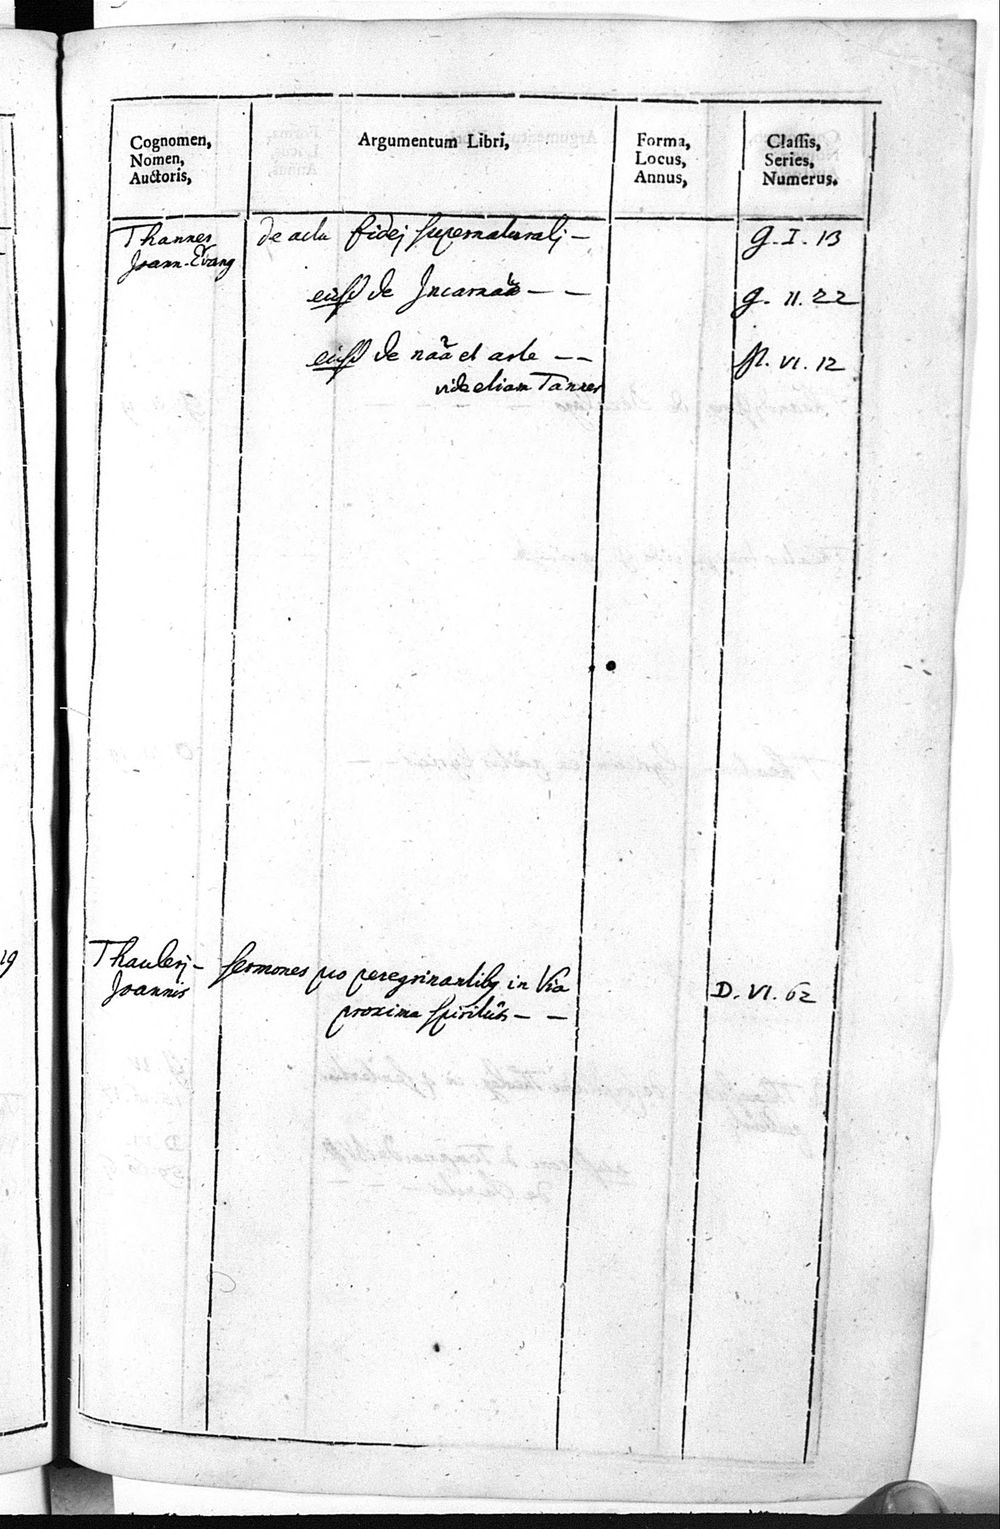 Cognomen,
Nomen,
Auctoris,
Argumentum Libri,
Forma,
Locus,
Annus,
Classis,
Series,
Numerus.
Thanner Joann. Evang
de actu fidej supernaturalj —
G. I. 13
eiusd de Incarnaõe — —
G. II. 22
eiusd de naã et arte — —
N. VI. 12
vide etiam Tanner
19
Thaulerj — Joannis
Sermones pro peregrinantibq in Via
proxima spiritûs — —
D. VI. 62